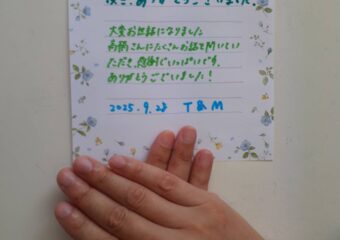 ありがとうございました。
大変お世話になりました
高橋さんにたくさんお話を聞いてい
ただき、感謝でいっぱいです。
ありがとうございました!
2025.9.28 T&M